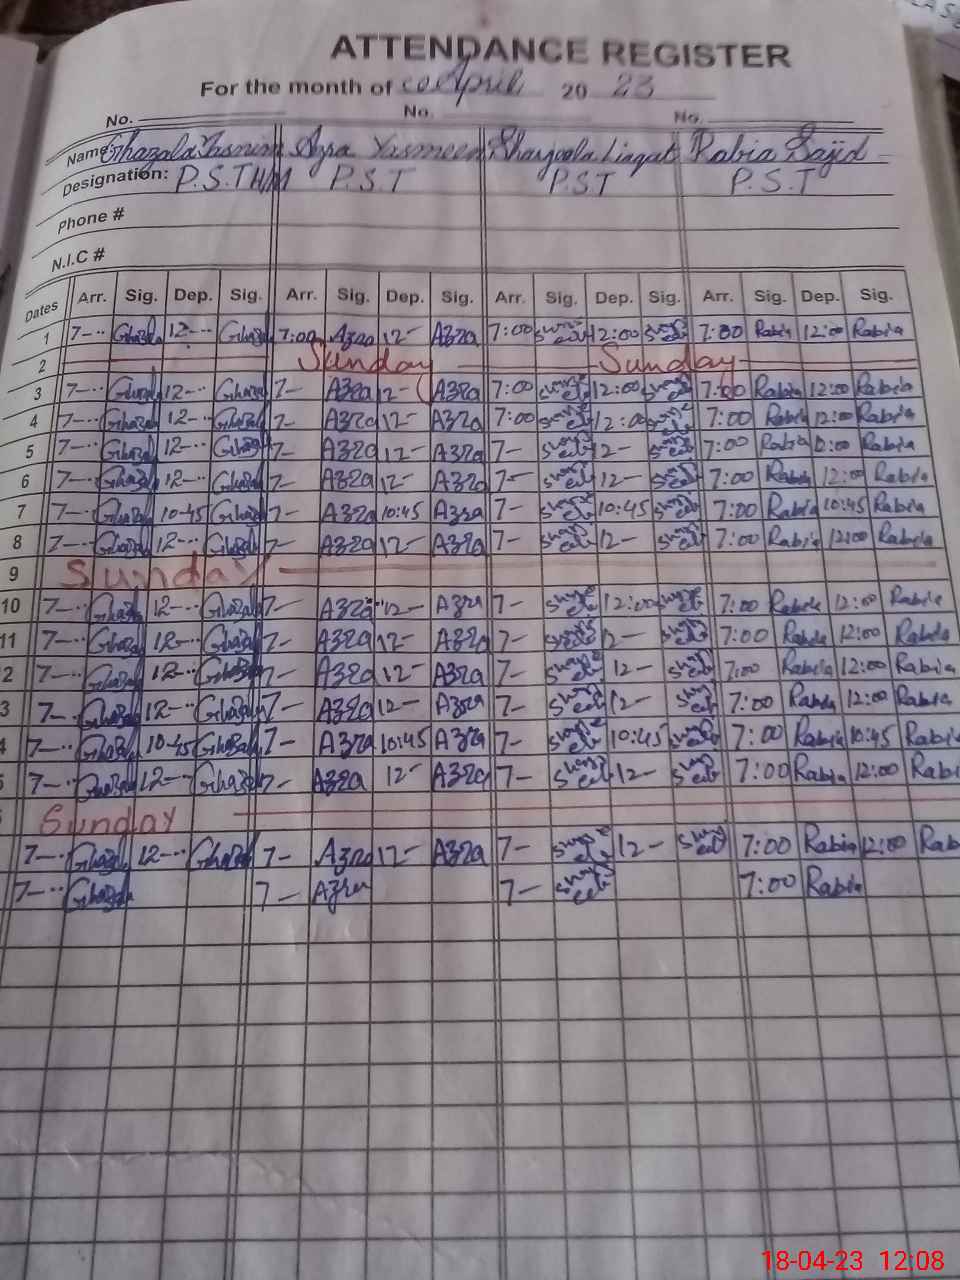 ATTENDANCE REGISTER
For the month of April 20 23
No. No. No.
Name: Ghazala Yasmin Azra Yasmeen Liaqat Rabia Sajid
Designation: P.S.T H/M P.S.T P.S.T P.S.T
Phone #
N.I.C #
Dates Arr. Sig. Dep. Sig. Arr. Sig. Dep. Sig. Arr. Sig. Dep. Sig. Arr. Sig. Dep. Sig.
1 7-- Ghazala 12-- Ghazala 7:00 Azra 12- Azra 7:00 12:00 7:00 Rabia 12:00 Rabia
2 Sunday Sunday
3 7-- Ghazala 12-- Ghazala 7- Azra 12- Azra 7:00 12:00 7:00 Rabia 12:00 Rabia
4 7-- Ghazala 12-- Ghazala 7- Azra 12- Azra 7:00 12:00 7:00 Rabia 12:00 Rabia
5 7-- Ghazala 12-- Ghazala 7- Azra 12- Azra 7- 12- 7:00 Rabia 12:00 Rabia
6 7-- Ghazala 12-- Ghazala 7- Azra 12- Azra 7- 12- 7:00 Rabia 12:00 Rabia
7 7-- Ghazala 10-45 Ghazala 7- Azra 10:45 Azra 7- 10:45 7:00 Rabia 10:45 Rabia
8 7-- Ghazala 12-- Ghazala 7- Azra 12- Azra 7- 12- 7:00 Rabia 12:00 Rabia
9 Sunday
10 7-- Ghazala 12-- Ghazala 7- Azra 12- Azra 7- 12:00 7:00 Rabia 12:00 Rabia
11 7-- Ghazala 12-- Ghazala 7- Azra 12- Azra 7- 12- 7:00 Rabia 12:00 Rabia
2 7-- Ghazala 12-- Ghazala 7- Azra 12- Azra 7- 12- 7:00 Rabia 12:00 Rabia
3 7-- Ghazala 12-- Ghazala 7- Azra 12- Azra 7- 12- 7:00 Rabia 12:00 Rabia
4 7-- Ghazala 10-45 Ghazala 7- Azra 10:45 Azra 7- 10:45 7:00 Rabia 10:45 Rabi
5 7-- Ghazala 12-- Ghazala 7- Azra 12- Azra 7- 12- 7:00 Rabia 12:00 Rabi
Sunday
7-- Ghazala 12-- Ghazala 7- Azra 12- Azra 7- 12- 7:00 Rabia 12:00 Rab
7-- Ghazala 7- Azra 7- 7:00 Rabia
18-04-23 12:08